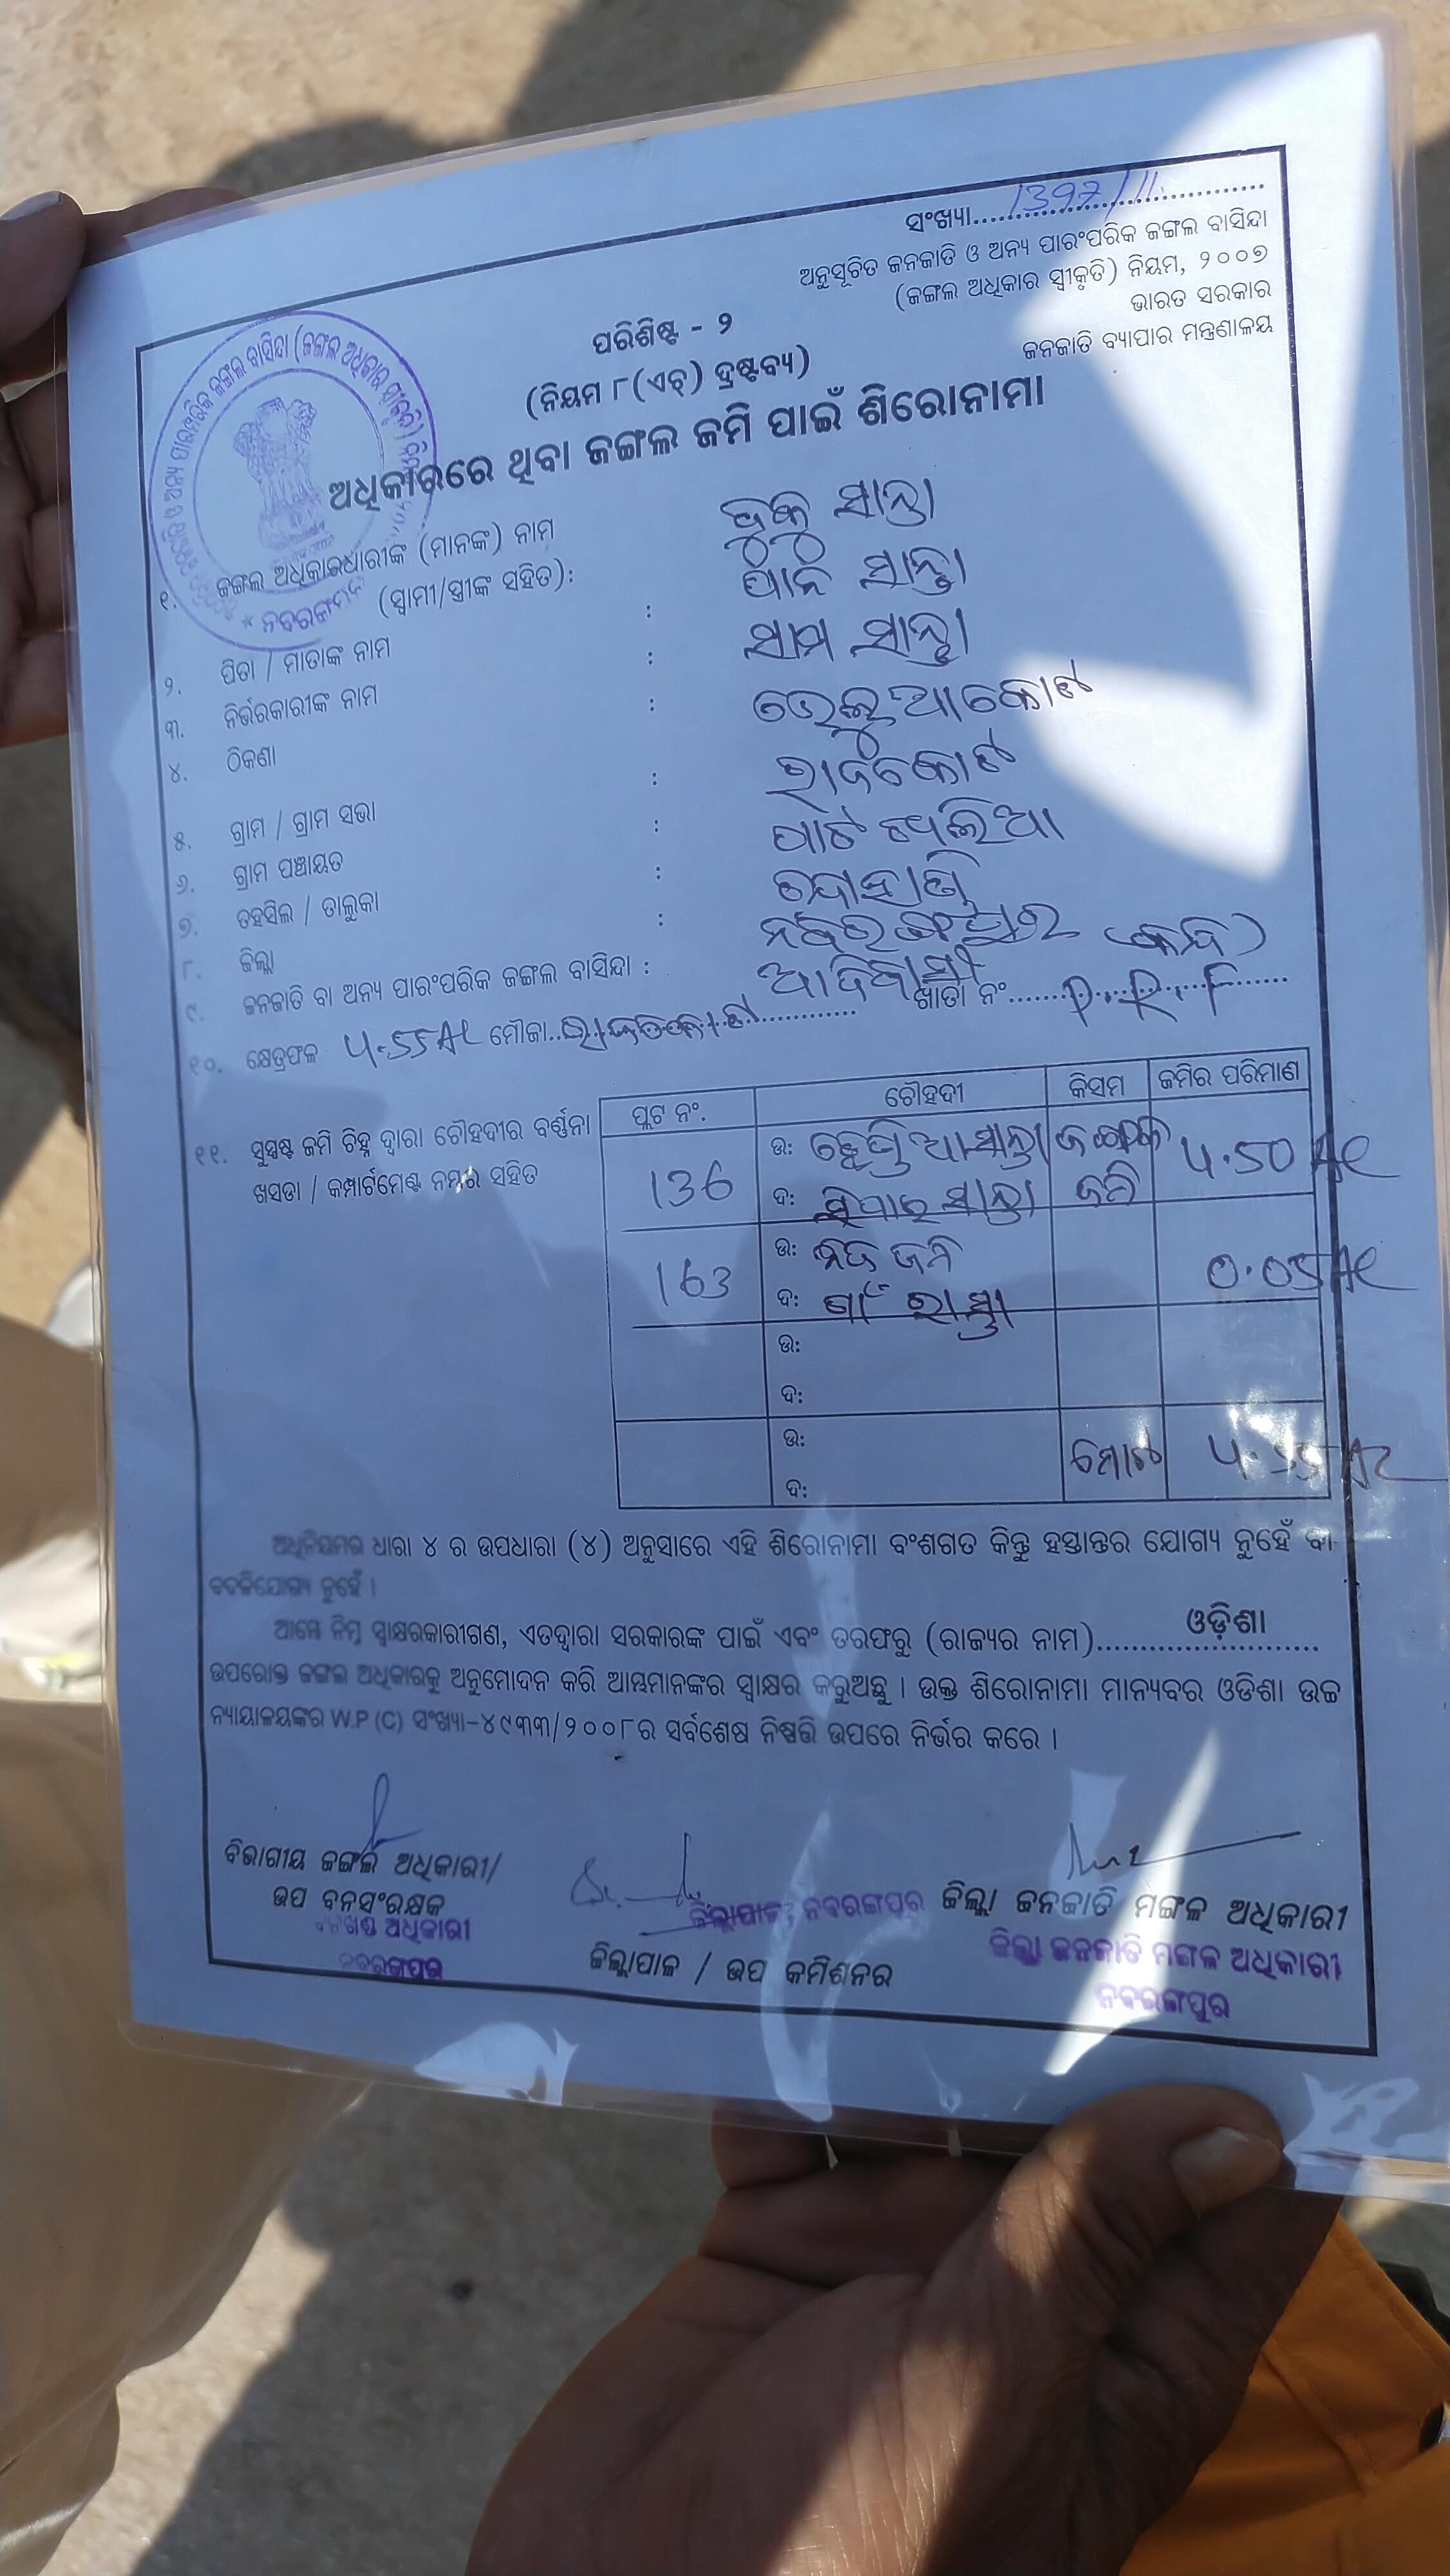 ସଂଖ୍ୟା 1397/11
ଅନୁସୂଚିତ ଜନଜାତି ଓ ଅନ୍ୟ ପାରଂପରିକ ଜଙ୍ଗଲ ବାସିନ୍ଦା
(ଜଙ୍ଗଲ ଅଧିକାର ସ୍ୱୀକୃତି) ନିୟମ, ୨୦୦୭
ଭାରତ ସରକାର
ଜନଜାତି ବ୍ୟାପାର ମନ୍ତ୍ରଣାଳୟ
ପରିଶିଷ୍ଟ - ୨
(ନିୟମ ୮(ଏଚ୍) ଦ୍ରଷ୍ଟବ୍ୟ)
ଅଧିକାରରେ ଥିବା ଜଙ୍ଗଲ ଜମି ପାଇଁ ଶିରୋନାମା
୧. ଜଙ୍ଗଲ ଅଧିକାରଧାରୀଙ୍କ (ମାନଙ୍କ) ନାମ ସାନ୍ତା
(ସ୍ୱାମୀ/ସ୍ତ୍ରୀଙ୍କ ସହିତ): ସାନ୍ତା
୨. ପିତା / ମାତାଙ୍କ ନାମ : ସାନ୍ତା
୩. ନିର୍ଭରକାରୀଙ୍କ ନାମ :
୪. ଠିକଣା :
୫. ଗ୍ରାମ / ଗ୍ରାମ ସଭା :
୬. ଗ୍ରାମ ପଞ୍ଚାୟତ :
୭. ତହସିଲ / ତାଲୁକା :
୮. ଜିଲ୍ଲା : ନବରଙ୍ଗପୁର
୯. ଜନଜାତି ବା ଅନ୍ୟ ପାରଂପରିକ ଜଙ୍ଗଲ ବାସିନ୍ଦା : ଆଦିବାସୀ
୧୦. କ୍ଷେତ୍ରଫଳ 4.55 Ac ମୌଜା ଖାତା ନଂ P.R.F
୧୧. ସୁସ୍ପଷ୍ଟ ଜମି ଚିହ୍ନ ଦ୍ୱାରା ଚୌହଦୀର ବର୍ଣ୍ଣନା
ଖସଡା / କମ୍ପାର୍ଟମେଣ୍ଟ ନମ୍ବର ସହିତ
ପ୍ଲଟ ନଂ. ଚୌହଦୀ କିସମ ଜମିର ପରିମାଣ
136 ଉ: ସାନ୍ତା ଜଙ୍ଗଲ 4.50 Ac
ଦ: ସାନ୍ତା ଜମି
163 ଉ: ଜନି 0.05 Ac
ଦ: ଗାଁ ରାସ୍ତା
ଉ:
ଦ:
ଉ: ମୋଟ 4.55 Ac
ଦ:
ଅଧିନିୟମର ଧାରା ୪ ର ଉପଧାରା (୪) ଅନୁସାରେ ଏହି ଶିରୋନାମା ବଂଶଗତ କିନ୍ତୁ ହସ୍ତାନ୍ତର ଯୋଗ୍ୟ ନୁହେଁ ବା
ବଦଳିଯୋଗ୍ୟ ନୁହେଁ ।
ଆମ୍ଭେ ନିମ୍ନ ସ୍ୱାକ୍ଷରକାରୀଗଣ, ଏତଦ୍ୱାରା ସରକାରଙ୍କ ପାଇଁ ଏବଂ ତରଫରୁ (ରାଜ୍ୟର ନାମ) ଓଡ଼ିଶା
ଉପରୋକ୍ତ ଜଙ୍ଗଲ ଅଧିକାରକୁ ଅନୁମୋଦନ କରି ଆମ୍ଭମାନଙ୍କର ସ୍ୱାକ୍ଷର କରୁଅଛୁ । ଉକ୍ତ ଶିରୋନାମା ମାନ୍ୟବର ଓଡିଶା ଉଚ୍ଚ
ନ୍ୟାୟାଳୟଙ୍କର W.P (C) ସଂଖ୍ୟା-୪୯୩୩/୨୦୦୮ର ସର୍ବଶେଷ ନିଷ୍ପତ୍ତି ଉପରେ ନିର୍ଭର କରେ ।
ବିଭାଗୀୟ ଜଙ୍ଗଲ ଅଧିକାରୀ/
ଉପ ବନସଂରକ୍ଷକ
ବନଖଣ୍ଡ ଅଧିକାରୀ
ନବରଙ୍ଗପୁର
ଜିଲ୍ଲାପାଳ, ନବରଙ୍ଗପୁର
ଜିଲ୍ଲାପାଳ / ଉପ କମିଶନର
ଜିଲ୍ଲା ଜନଜାତି ମଙ୍ଗଳ ଅଧିକାରୀ
ଜିଲ୍ଲା ଜନଜାତି ମଙ୍ଗଳ ଅଧିକାରୀ
ନବରଙ୍ଗପୁର